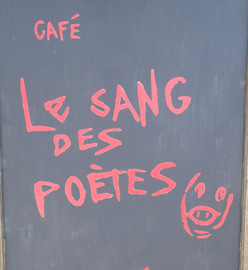 CAFÉ
Le SANG
DES
POÈTES